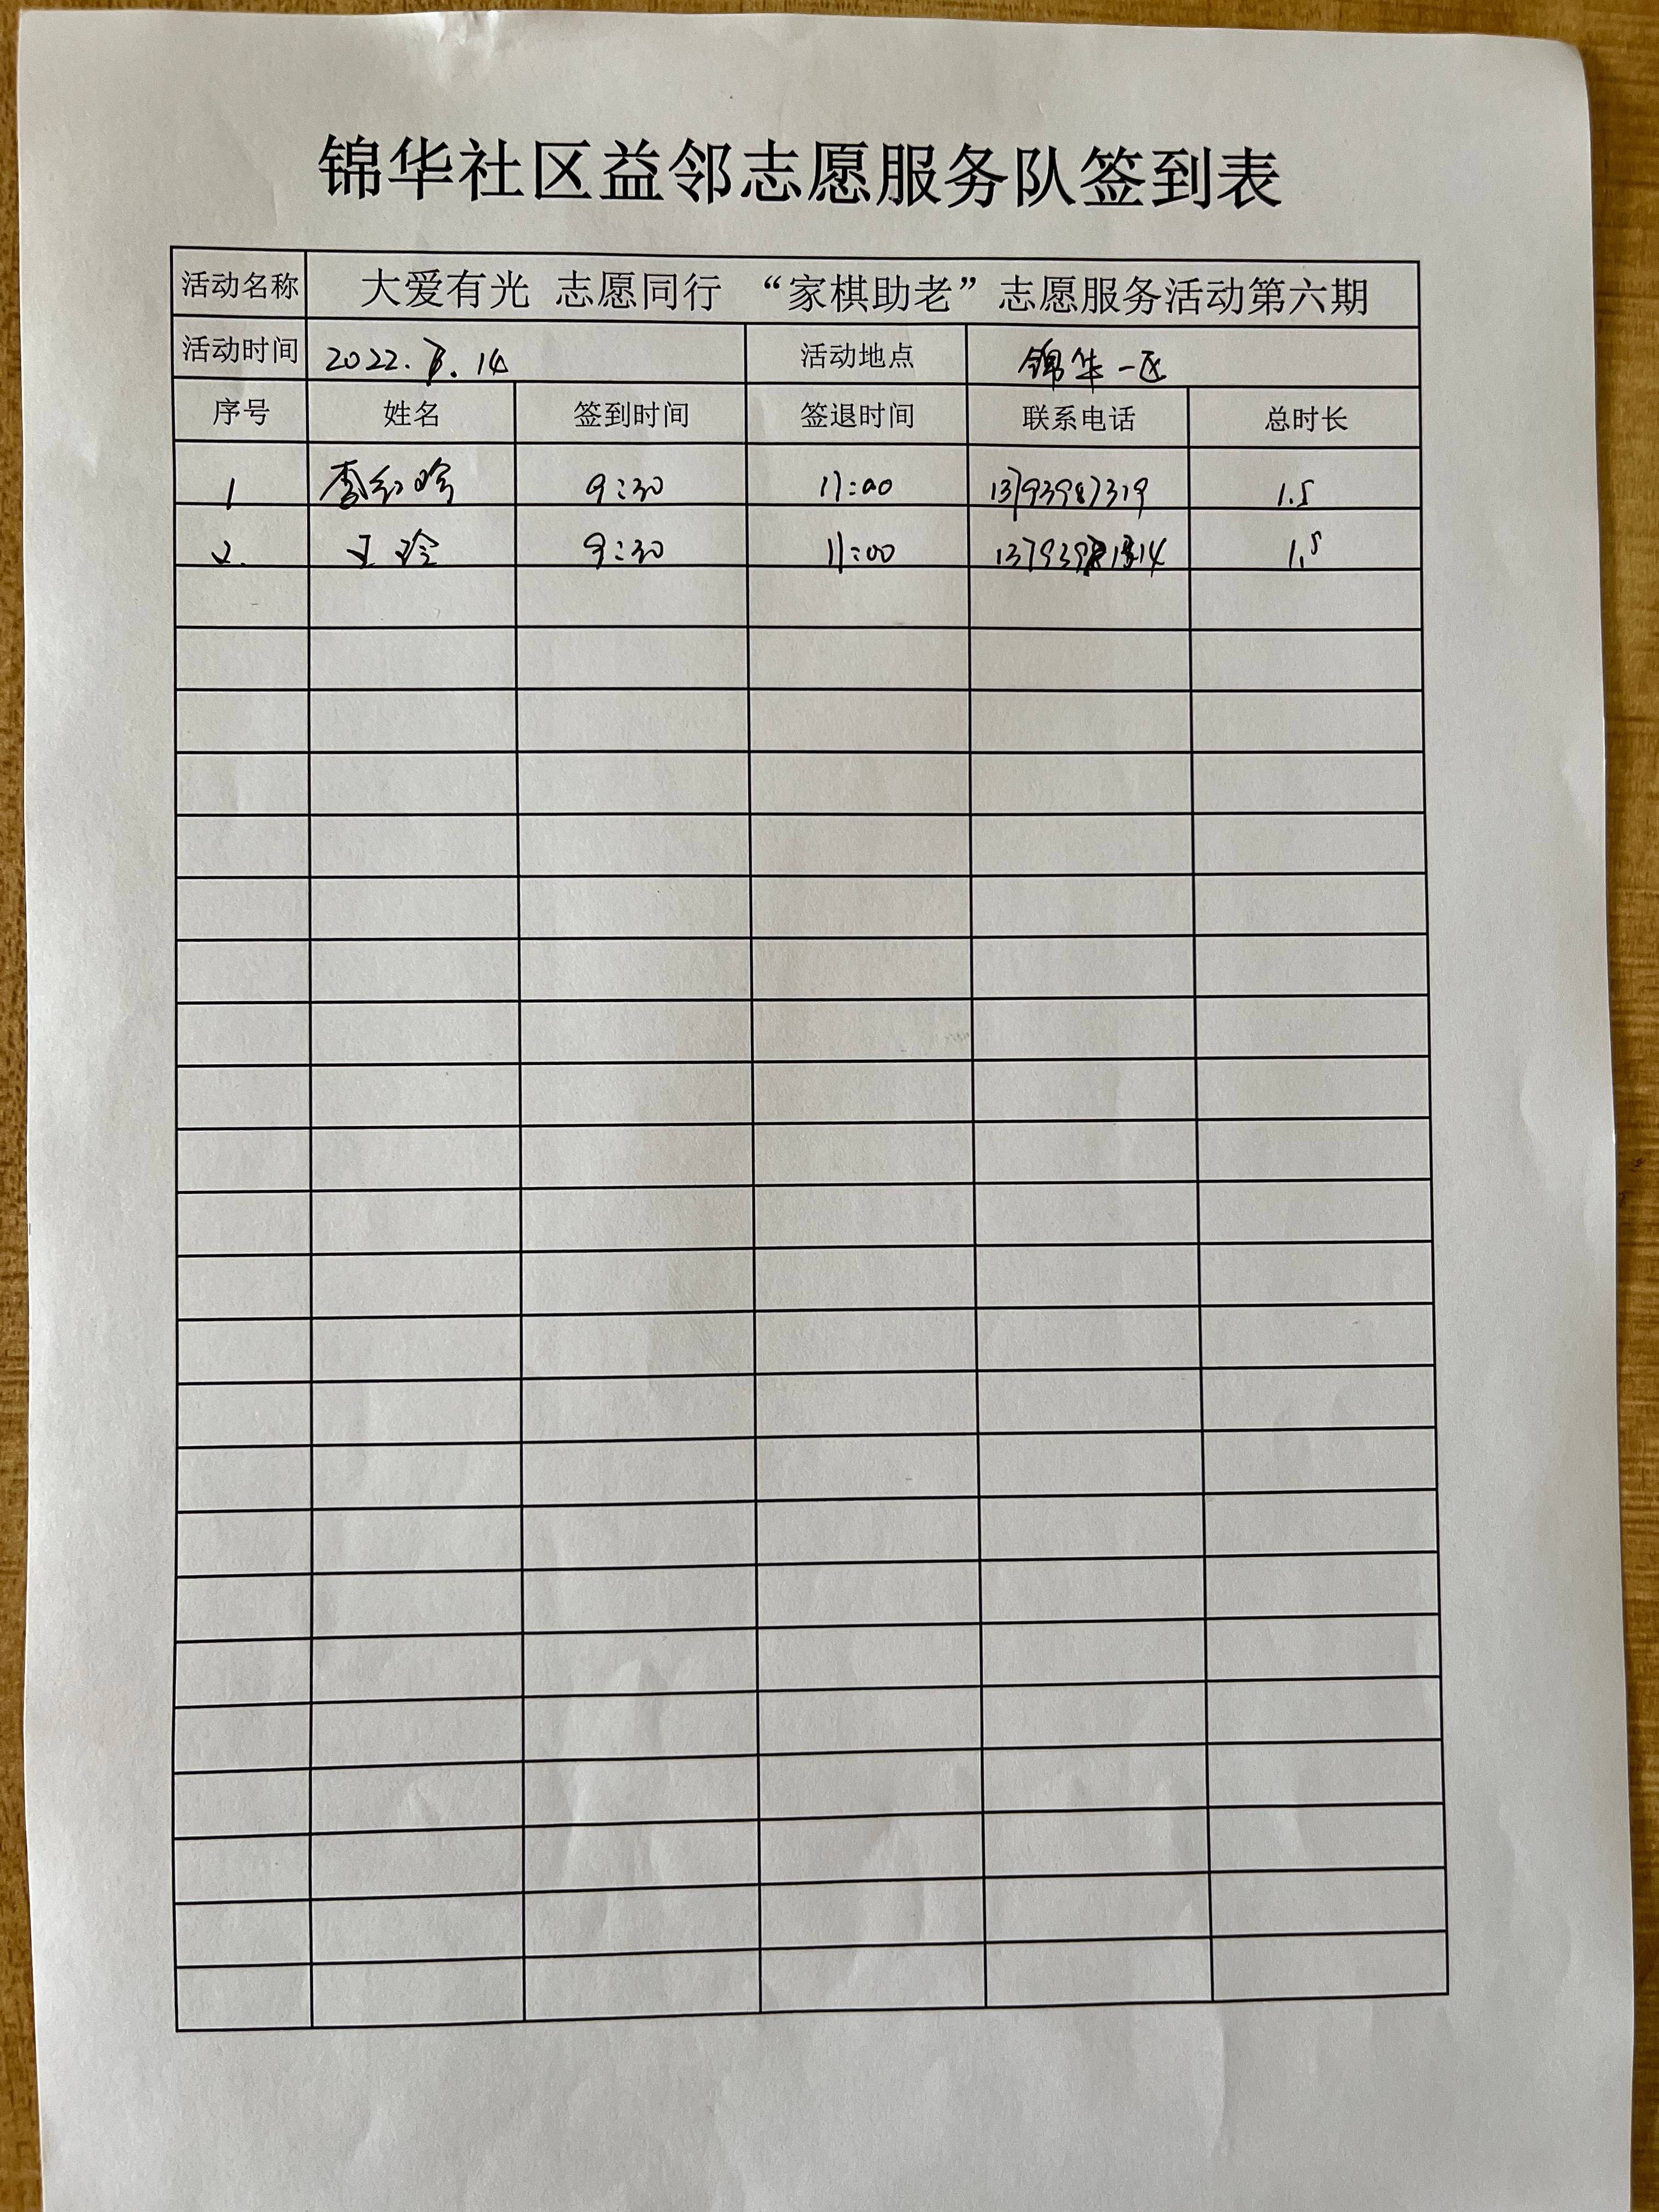 锦华社区益邻志愿服务队签到表
活动名称 大爱有光 志愿同行 “家棋助老”志愿服务活动第六期
活动时间 2022. .14 活动地点 锦华一区
序号 姓名 签到时间 签退时间 联系电话 总时长
1 李红玲 9:30 11:00 13793987319 1.5
2. 王玲 9:30 11:00 1.5